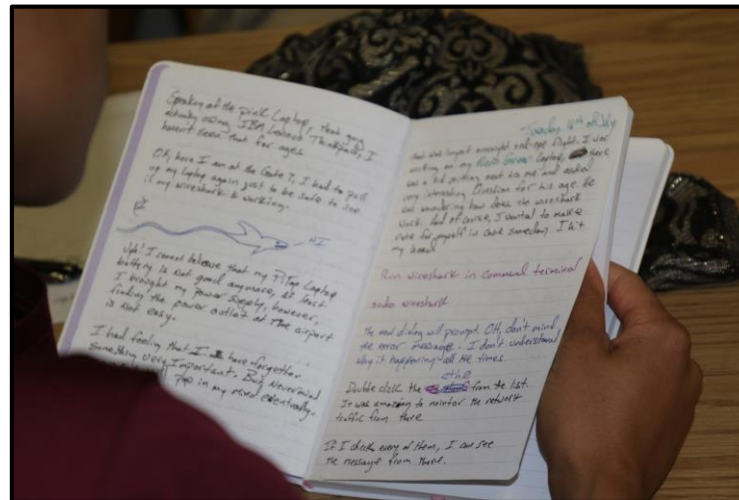 Speaking of the pink Laptop, that guy
actually using IBM Lenovo Thinkpad, I
haven't seen that for ages
Oh, here I am at the Gate 7, I had to pull
up my laptop again just to be safe to see
if my wireshark is working.
HI
Ugh! I cannot believe that my PiTop Laptop
battery is not good anymore, at least
I brought my power supply, however,
finding the power outlet at the airport
is not easy.
I had feeling that I have forgotten
something very important. But Nevermind
pop in my mind eventually.
Tuesday 16th of July
that was longest overnight red-eye flight. I was
working on my Laptop, there
was a kid sitting next to me and asked
very interesting question for his age. He
was wondering how does the wireshark
work. And of course, I wanted to make
note for myself in case someday I hit
my head.
Run wireshark in command terminal
sudo wireshark
The and dialog will prompt. OH, don't mind
the error message. I don't understand
why it happening all the times.
eth0
Double click the from the list.
It was amazing to monitor the network
traffic from there
If I check every of them, I can see
the message from there.